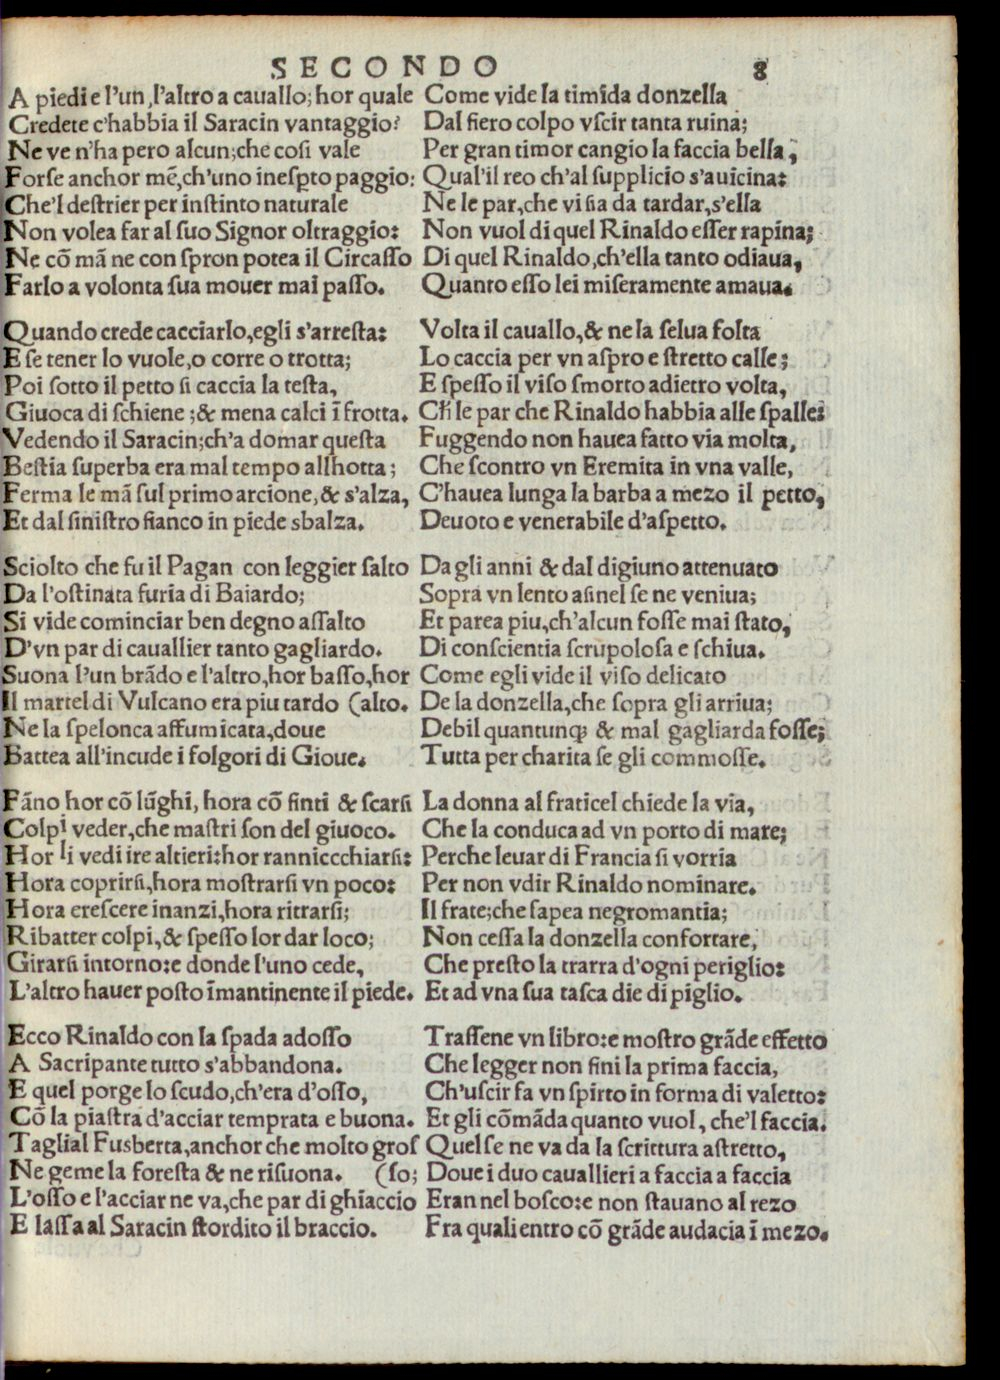 SECONDO 8
A piedi e l'un, l'altro a cauallo; hor quale
Credete c'habbia il Saracin vantaggio?
Ne ve n'ha pero alcun; che cosi vale
Forse anchor mẽ, ch'uno inespto paggio:
Che'l destrier per instinto naturale
Non volea far al suo Signor oltraggio:
Ne cõ mã ne con spron potea il Circasso
Farlo a volonta sua mouer mai passo.
Quando crede cacciarlo, egli s'arresta:
E se tener lo vuole, o corre o trotta;
Poi sotto il petto si caccia la testa,
Giuoca di schiene; & mena calci ĩ frotta.
Vedendo il Saracin; ch'a domar questa
Bestia superba era mal tempo allhotta;
Ferma le mã sul primo arcione, & s'alza,
Et dal sinistro fianco in piede sbalza.
Sciolto che fu il Pagan con leggier salto
Da l'ostinata furia di Baiardo;
Si vide cominciar ben degno assalto
D'vn par di cauallier tanto gagliardo.
Suona l'un brãdo e l'altro, hor basso, hor
Il martel di Vulcano era piu tardo (alto.
Ne la spelonca affumicata, doue
Battea all'incude i folgori di Gioue.
Fãno hor cõ lũghi, hora cõ finti & scarsi
Colpi veder, che mastri son del giuoco.
Hor li vedi ire altieri: hor ranniccchiarsi:
Hora coprirsi, hora mostrarsi vn poco:
Hora erescere inanzi, hora ritrarsi;
Ribatter colpi, & spesso lor dar loco;
Girarsi intorno: e donde l'uno cede,
L'altro hauer posto ĩmantinente il piede.
Ecco Rinaldo con la spada adosso
A Sacripante tutto s'abbandona.
E quel porge lo scudo, ch'era d'osso,
Cõ la piastra d'acciar temprata e buona.
Taglial Fusberta, anchor che molto gros
Ne geme la foresta & ne risuona. (so;
L'osso e l'acciar ne va, che par di ghiaccio
E lassa al Saracin stordito il braccio.
Come vide la timida donzella
Dal fiero colpo vscir tanta ruina;
Per gran timor cangio la faccia bella,
Qual'il reo ch'al supplicio s'auicina:
Ne le par, che vi sia da tardar, s'ella
Non vuol di quel Rinaldo esser rapina;
Di quel Rinaldo, ch'ella tanto odiaua,
Quanto esso lei miseramente amaua.
Volta il cauallo, & ne la selua folta
Lo caccia per vn aspro e stretto calle;
E spesso il viso smorto adietro volta,
Ch̃ le par che Rinaldo habbia alle spalle:
Fuggendo non hauea fatto via molta,
Che scontro vn Eremita in vna valle,
C'hauea lunga la barba a mezo il petto,
Deuoto e venerabile d'aspetto.
Da gli anni & dal digiuno attenuato
Sopra vn lento asinel se ne veniua;
Et parea piu, ch'alcun fosse mai stato,
Di conscientia scrupolosa e schiua.
Come egli vide il viso delicato
De la donzella, che sopra gli arriua;
Debil quantunq; & mal gagliarda fosse;
Tutta per charita se gli commosse.
La donna al fraticel chiede la via,
Che la conduca ad vn porto di mare;
Perche leuar di Francia si vorria
Per non vdir Rinaldo nominare.
Il frate; che sapea negromantia;
Non cessa la donzella confortare,
Che presto la trarra d'ogni periglio:
Et ad vna sua tasca die di piglio.
Trassene vn libro: e mostro grãde effetto
Che legger non fini la prima faccia,
Ch'uscir fa vn spirto in forma di valetto:
Et gli cõmãda quanto vuol, che'l faccia.
Quel se ne va da la scrittura astretto,
Doue i duo cauallieri a faccia a faccia
Eran nel bosco: e non stauano al rezo
Fra quali entro cõ grãde audacia ĩ mezo.